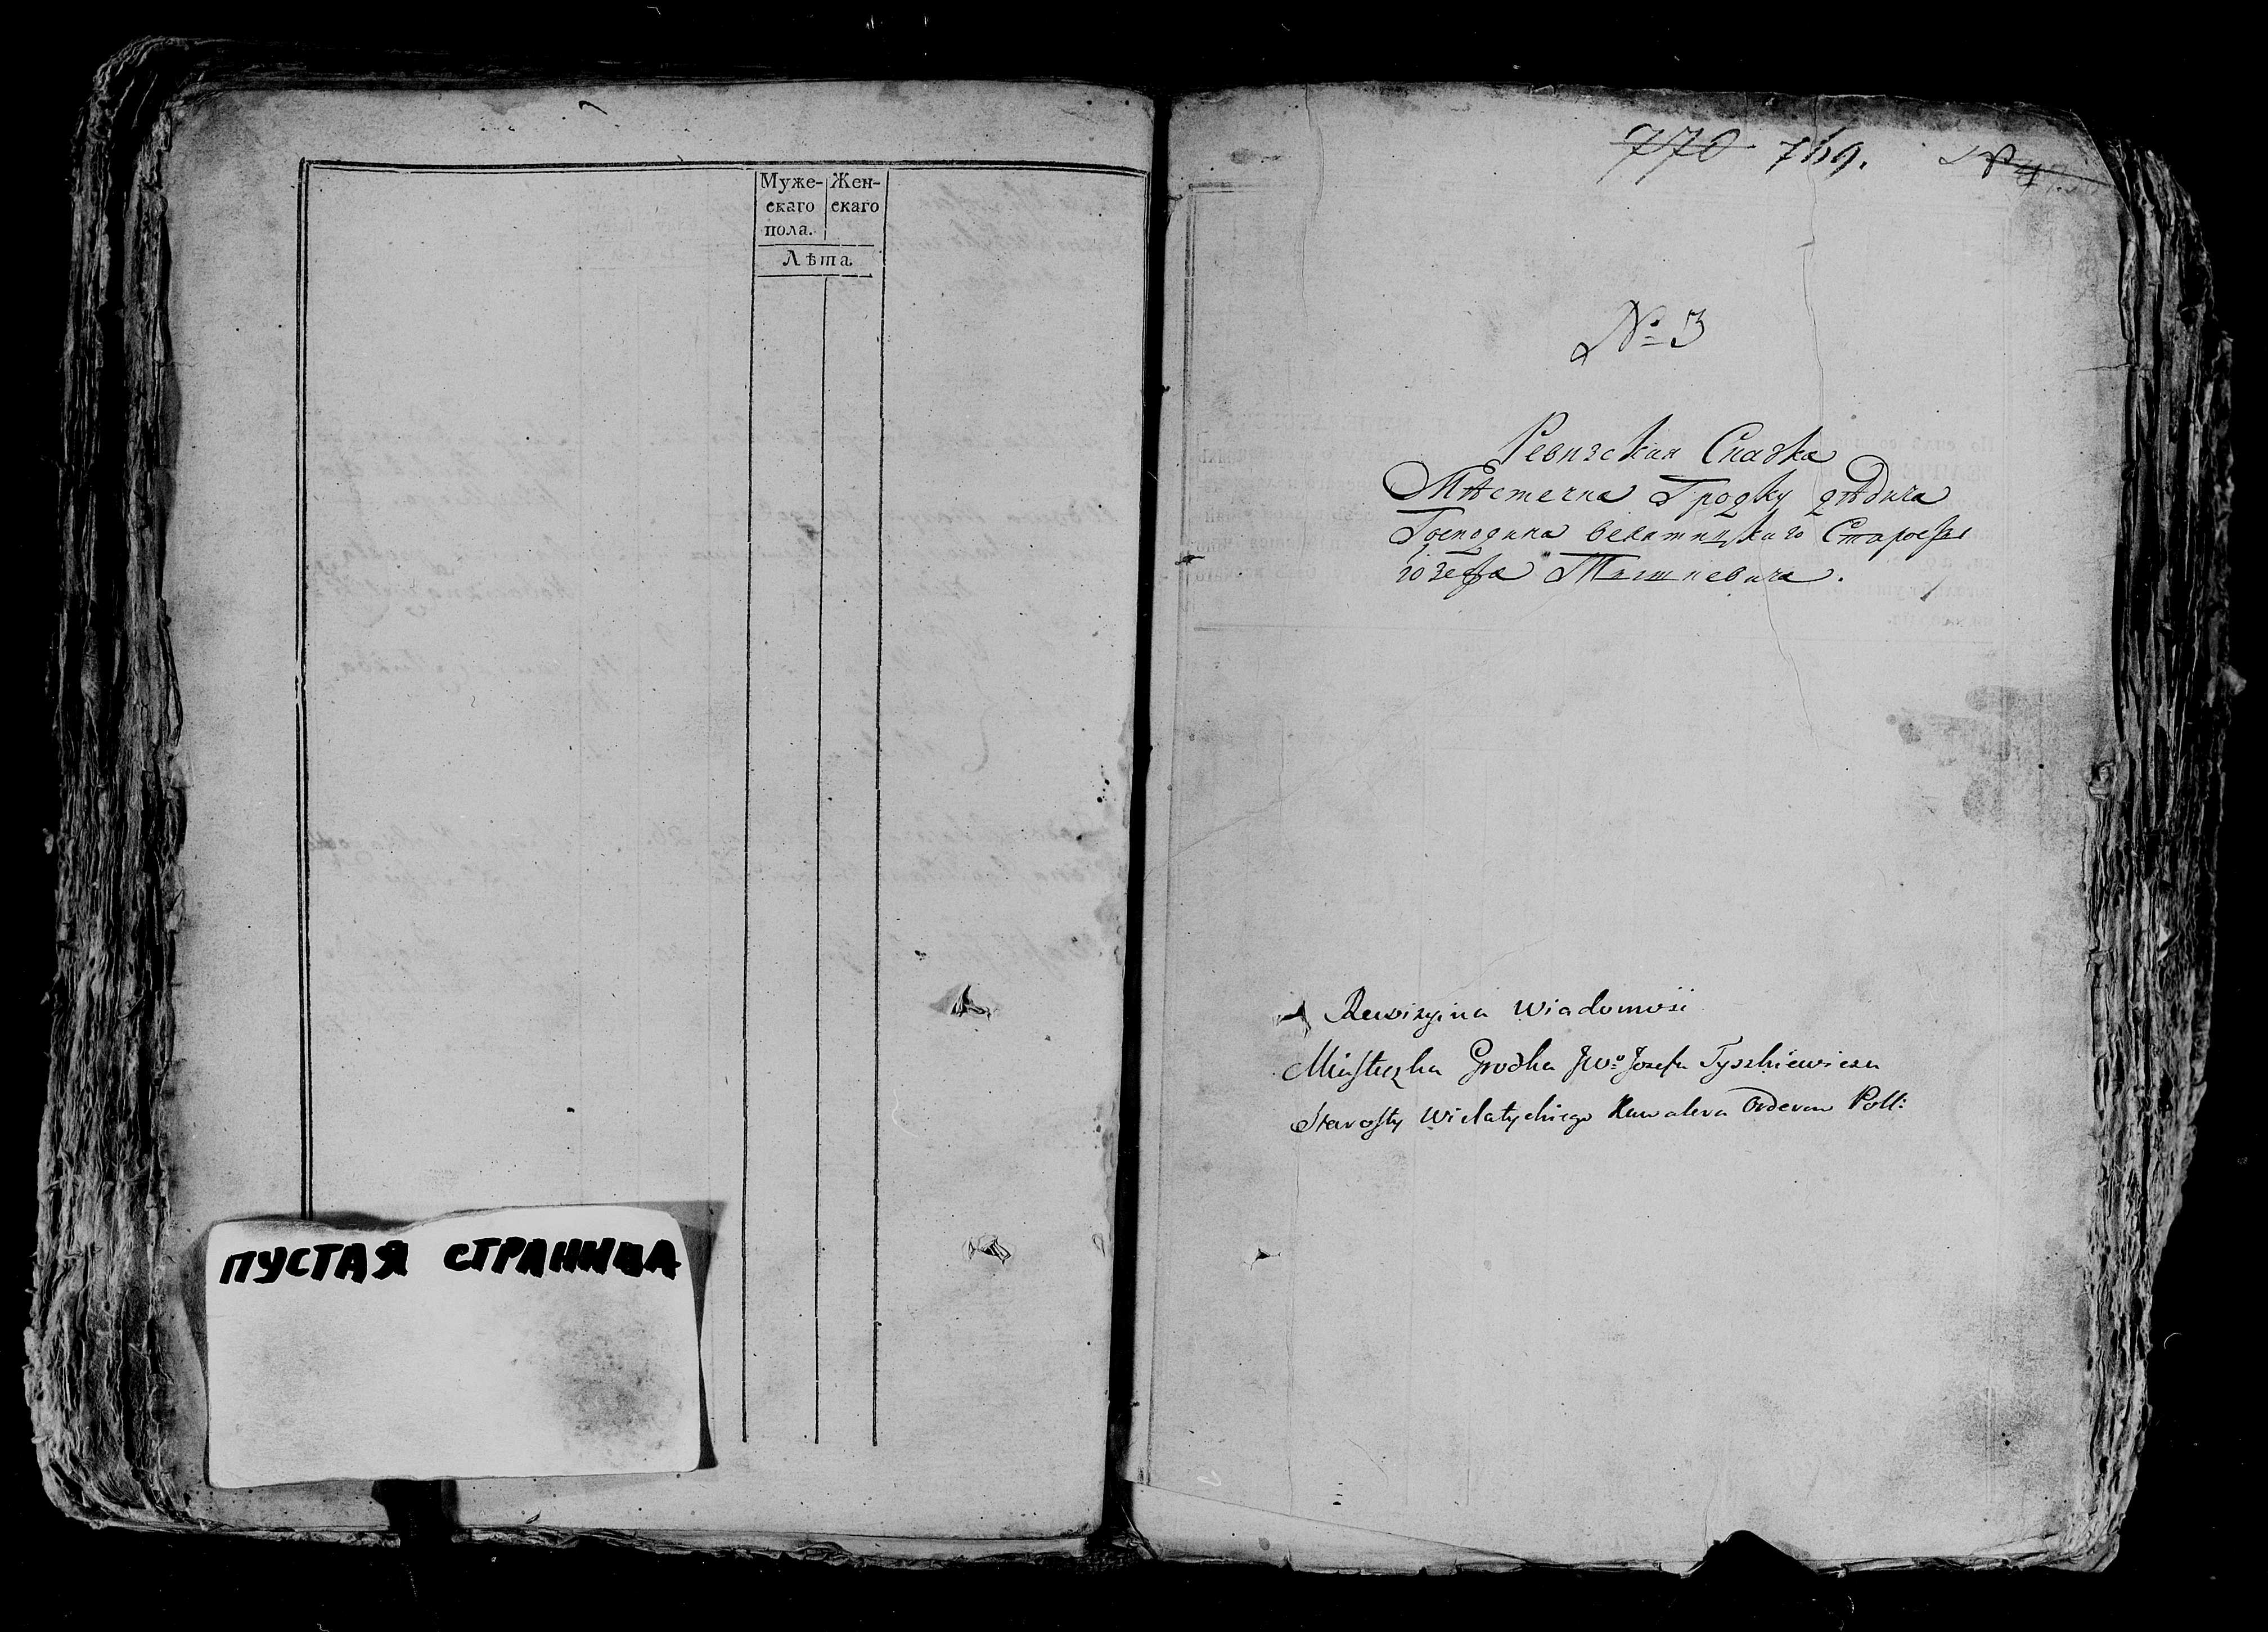 Муже-
скаго
пола.
Жен-
скаго
Лѣта
ПУСТАЯ СТРАНИЦА
770 769.
№ 3
Ревизская Сказка
Мѣстечка Гродку дѣдича
Господина велатицкаго Старосты
Іозефа Тышкевича.
Rewizyina Wiadomość
Miasteczka Grodka JWo Jozefa Tyszkiewicza
Starosty Wielatyckiego Kawalera Orderow Poll: